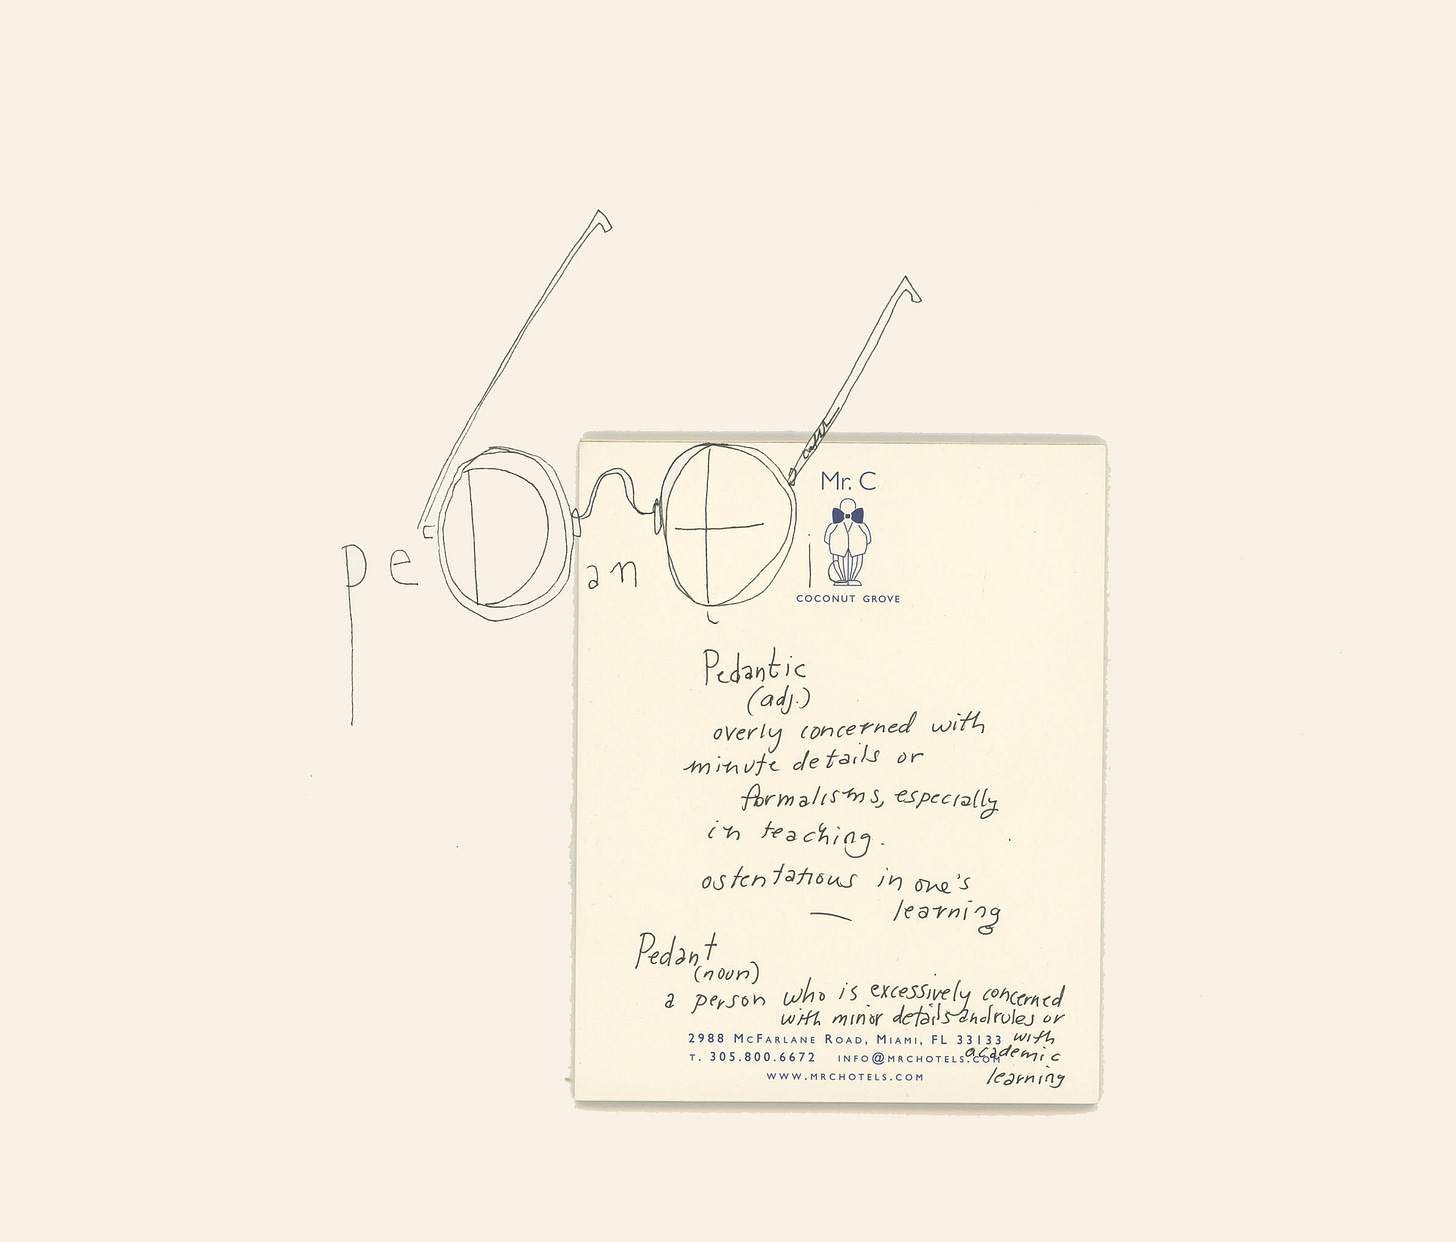 peDanti
Mr. C
COCONUT GROVE
Pedantic
(adj.)
overly concerned with
minute details or
formalisms, especially
in teaching.
ostentatious in one's
— learning
Pedant
(noun)
a person who is excessively concerned
with minor details and rules or
with
academic
learning
2988 McFarlane Road, Miami, FL 33133
T. 305.800.6672 info@mrchotels.com
www.mrchotels.com